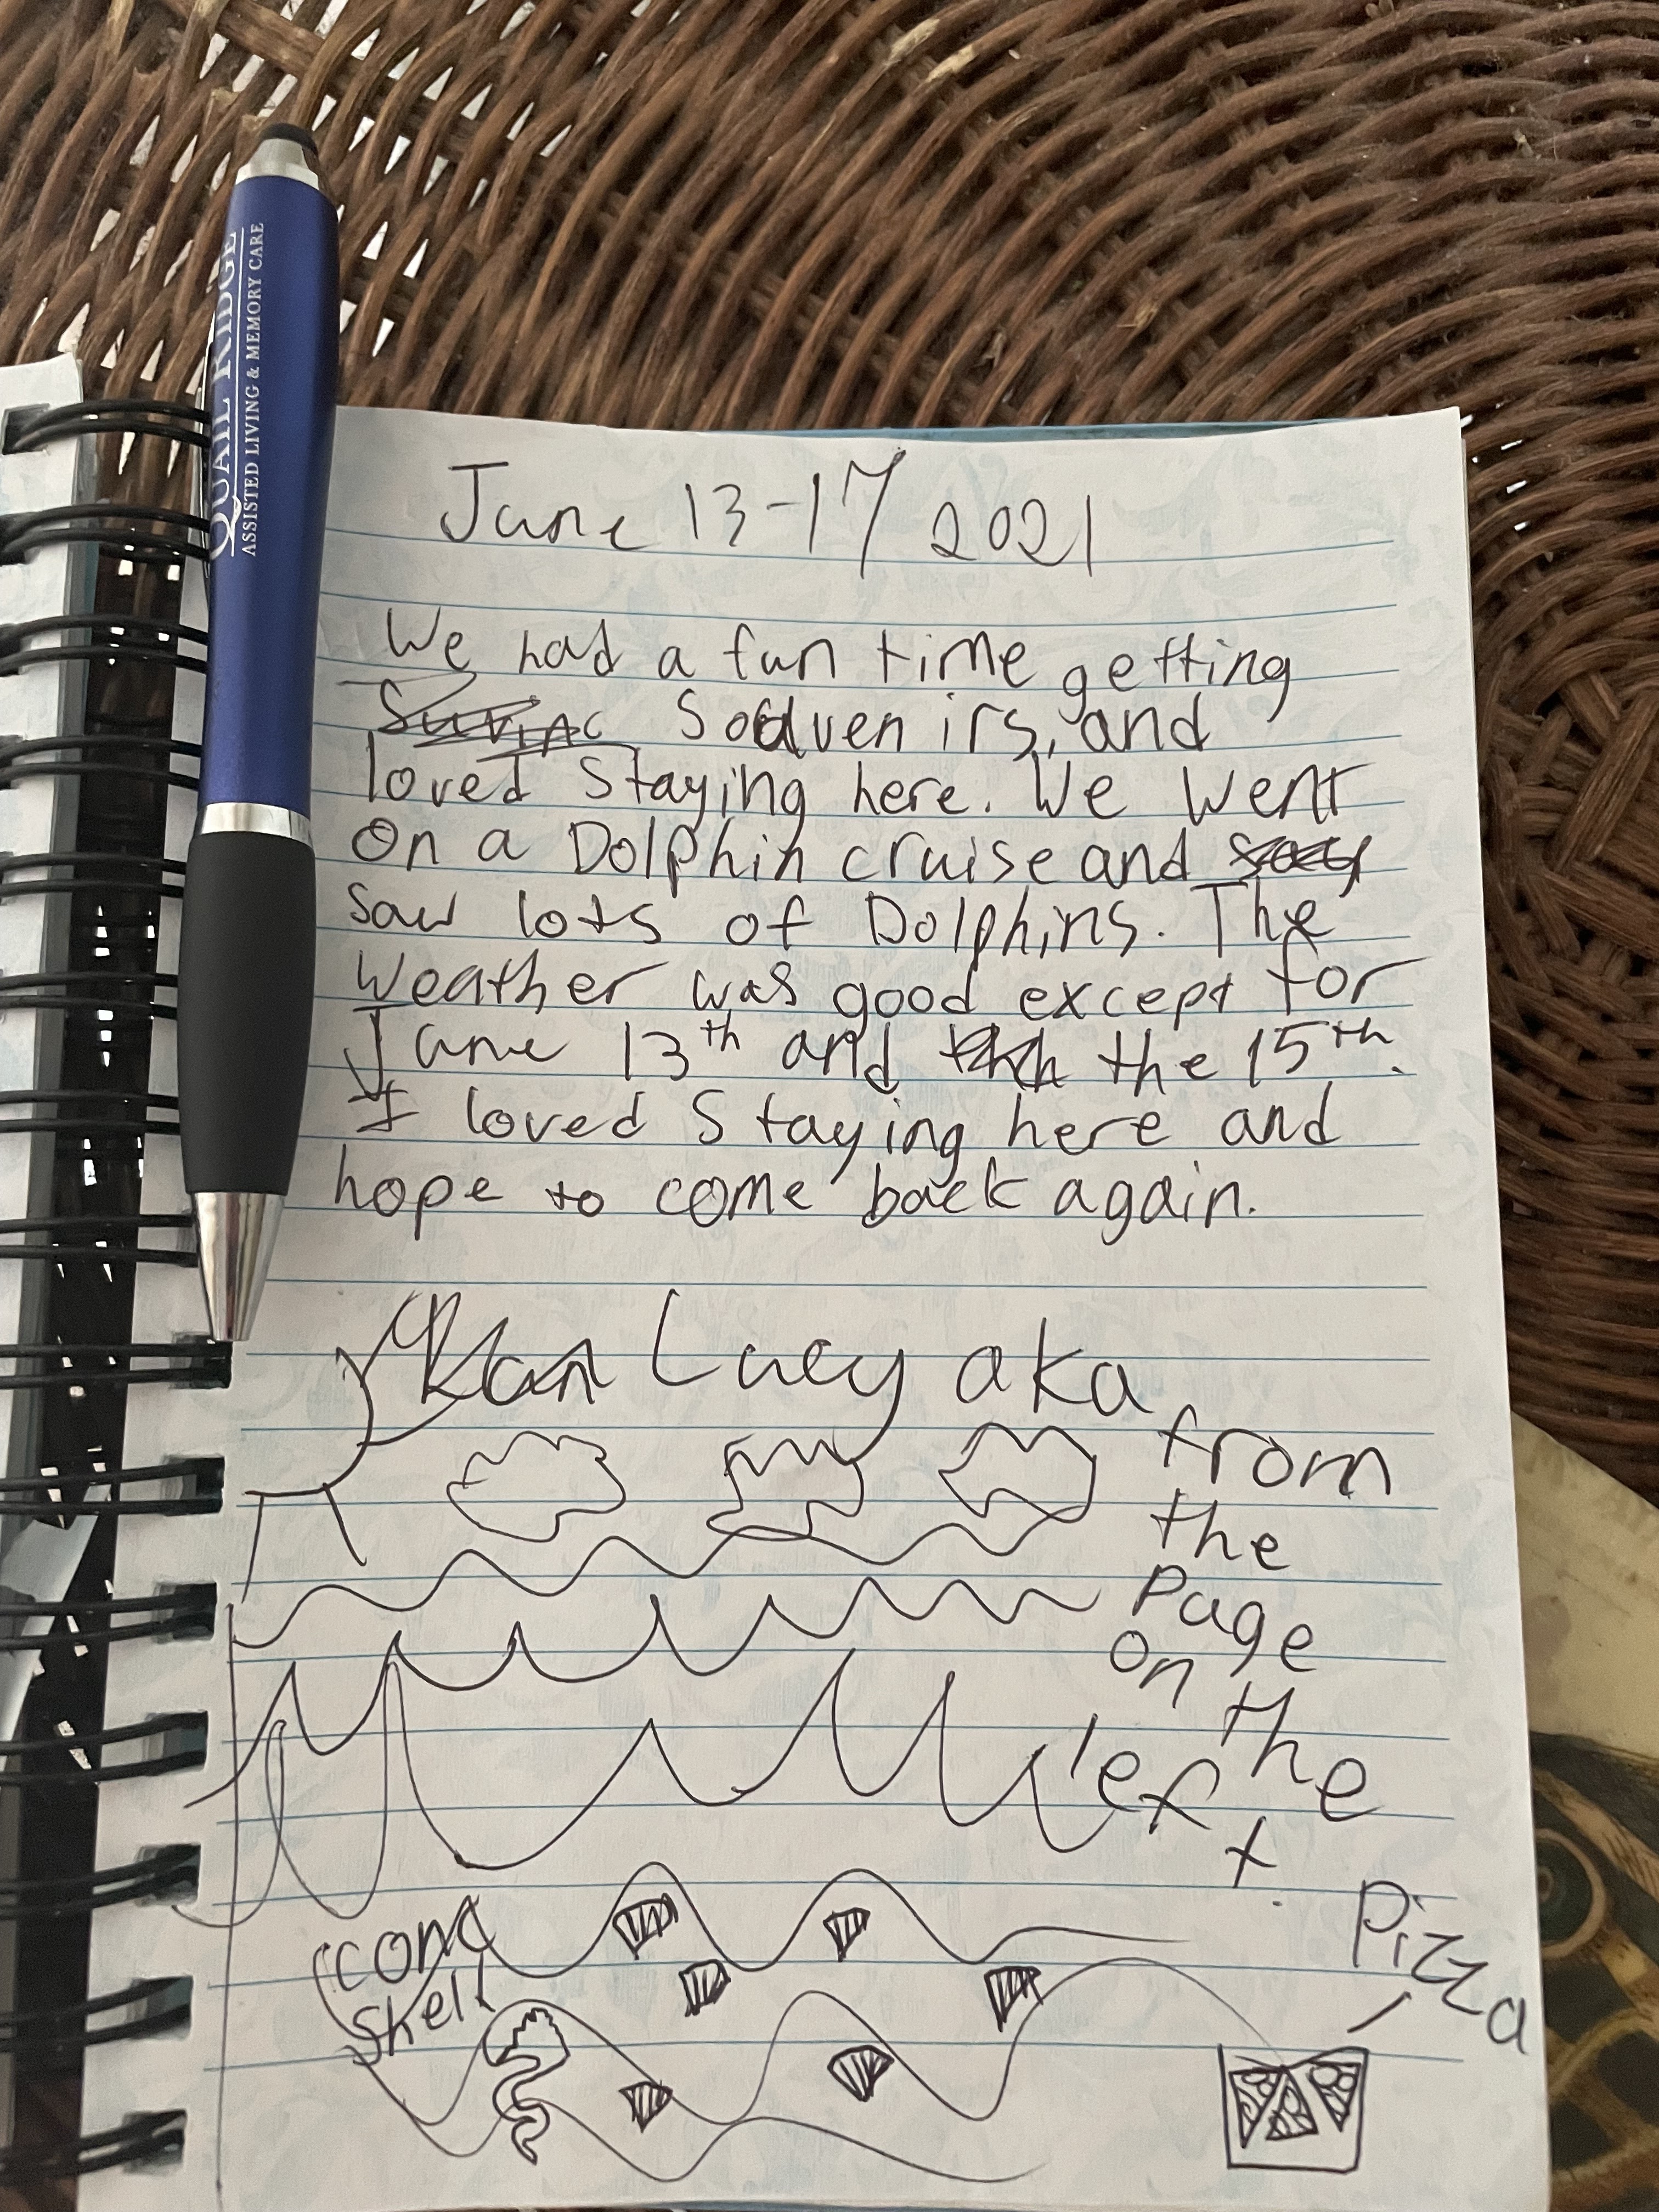 QUAIL RIDGE
ASSISTED LIVING & MEMORY CARE
June 13-17 2021
We had a fun time getting
Souvenirs, and
loved Staying here. We Went
On a Dolphin cruise and
saw lots of Dolphins. The
Weather was good except for
June 13th and the 15th.
I loved Staying here and
hope to come back again.
Lucy aka
from
the
Page
on
the
left.
Pizza
conc
Shell